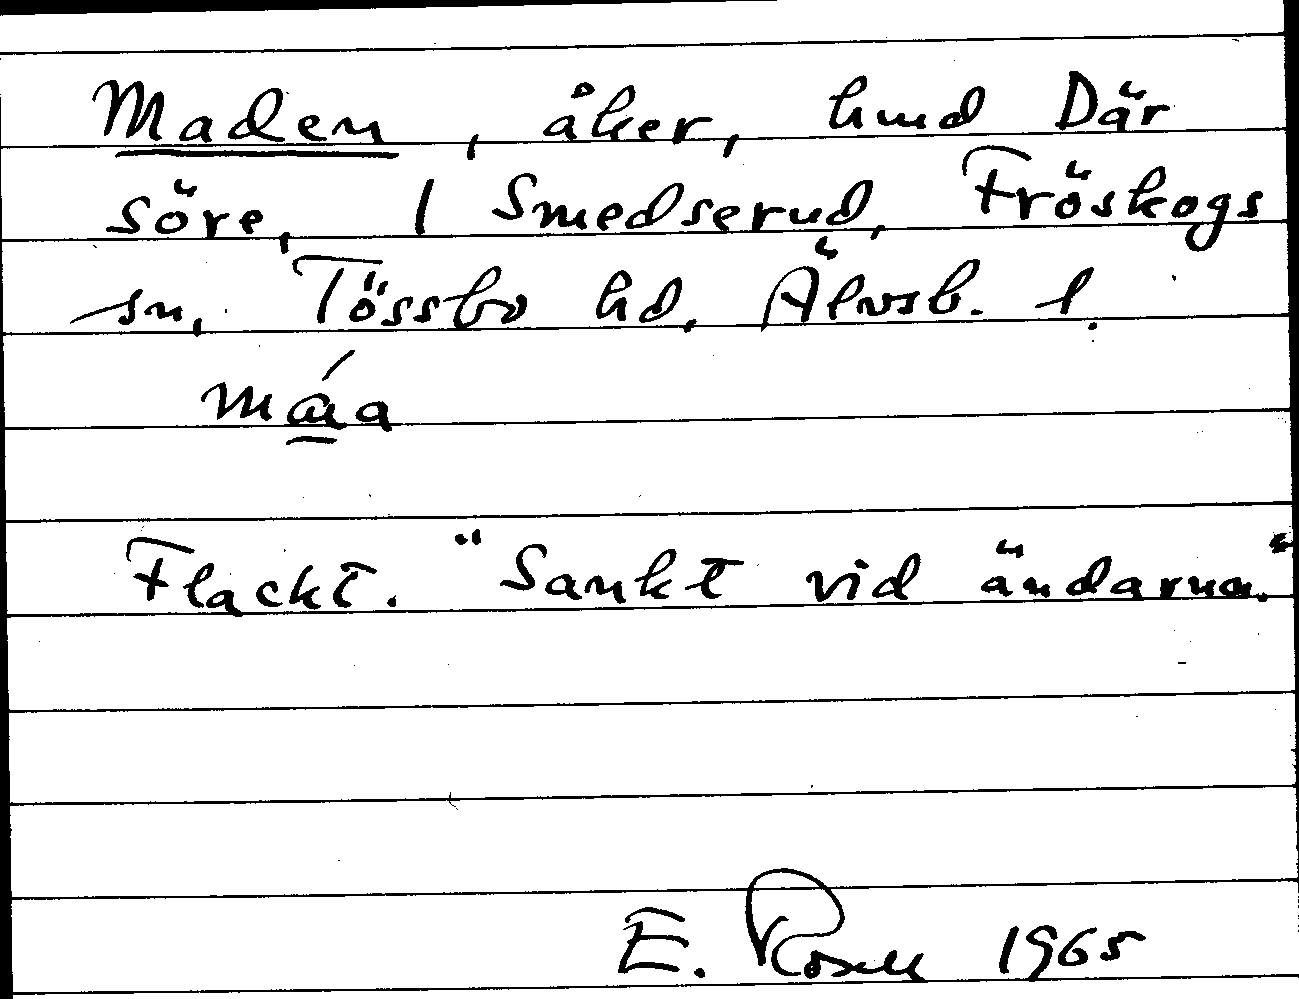 Maden, åker, hmd Där
söre, 1 Smedserud, Fröskogs
sn, Tössbo hd, Älvsb. l.
Flackt. "Sankt vid ändarna."
E. Rosell 1965